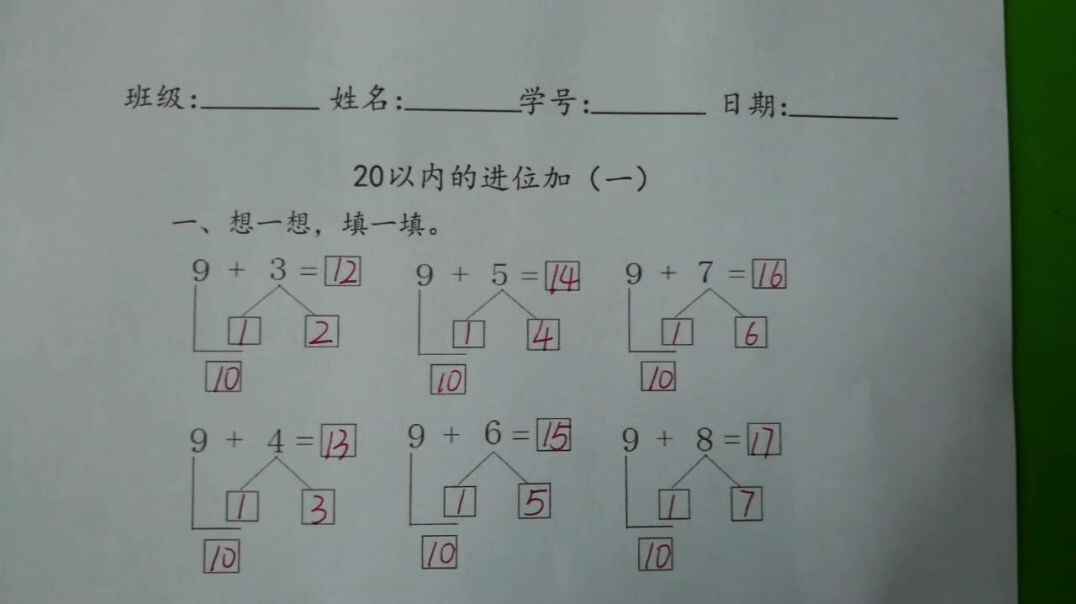 班级:______ 姓名:______学号:______ 日期:______
20以内的进位加（一）
一、想一想，填一填。
9 + 3 = 12 9 + 5 = 14 9 + 7 = 16
1 2 1 4 1 6
10 10 10
9 + 4 = 13 9 + 6 = 15 9 + 8 = 17
1 3 1 5 1 7
10 10 10